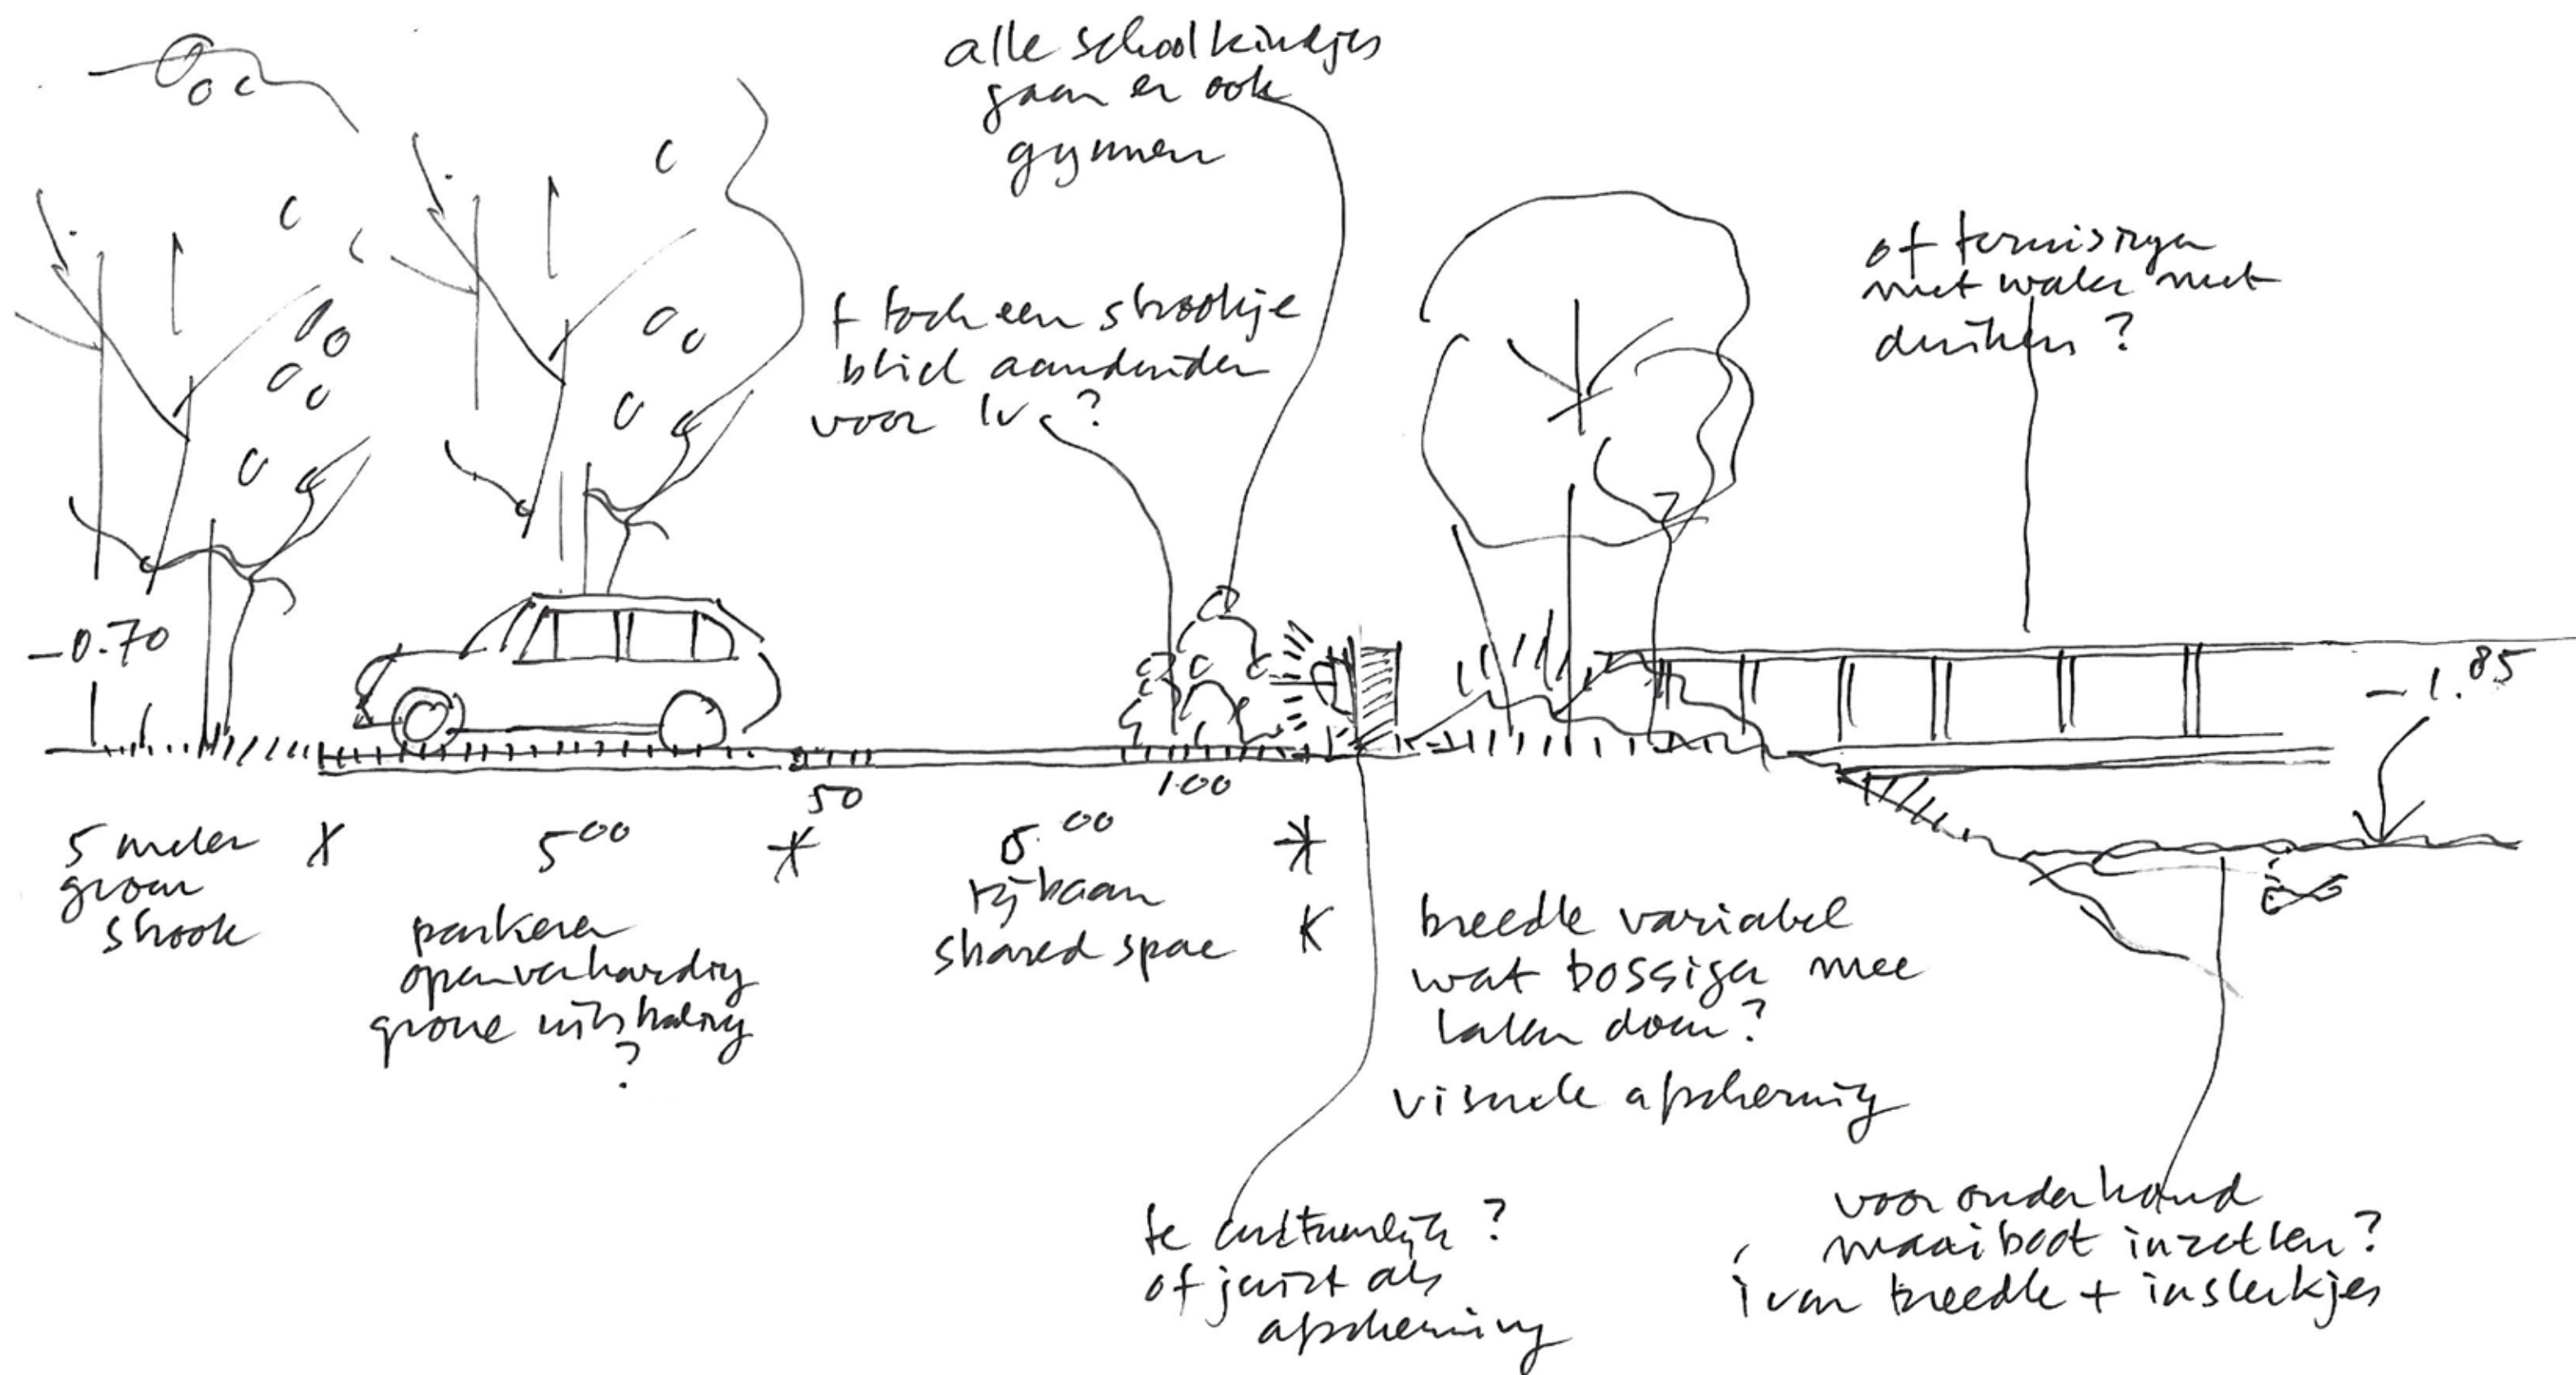 alle schoolkindjes
gaan er ook
gymmen
of
met water met
duikers ?
toch een strookje
aanduiden
voor lv ?
-0.70
-1.85
50
100
5 meter
groen
strook
5 00
parkeren
open verharding
groene uitstraling
?
5.00
rijbaan
shared space
breedte variabel
wat bossiger mee
laten doen ?
visuele afscherming
te cultuurlijk ?
of juist als
afscherming
voor onderhoud
maaiboot inzetten ?
ivm breedte + insteekjes